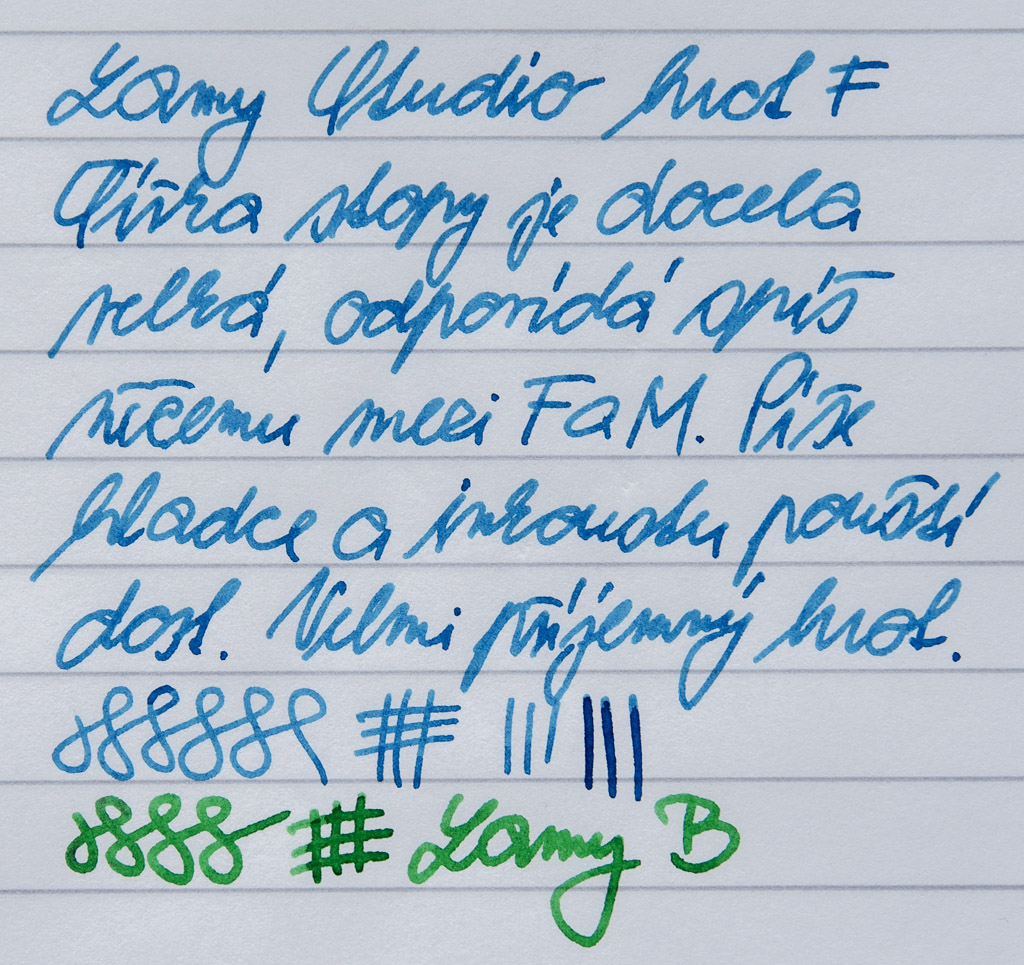 Lamy Studio hrot F
Šířka stopy je docela
velká, odpovídá spíš
něčemu mezi F a M. Píše
hladce a inkoustu pouští
dost. Velmi příjemný hrot.
Lamy B